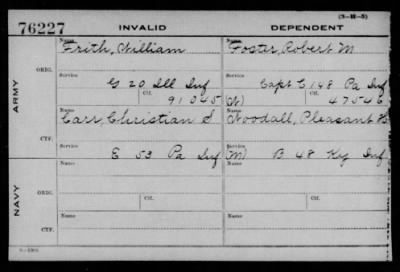 (3-M-5)
76227 INVALID DEPENDENT
Name Name
Frith, William Foster, Robert M
ORIG.
Service Service
G 20 Ill Inf Capt C 148 Pa Inf
Ctf. Ctf.
91045 (W) 47546
ARMY
Name Name
Carr, Christian S Woodall, Pleasant H
CTF.
Service Service
E 53 Pa Inf (M) B 48 Ky Inf
Name Name
ORIG.
NAVY
Service Ctf. Service Ctf.
Name Name
CTF.